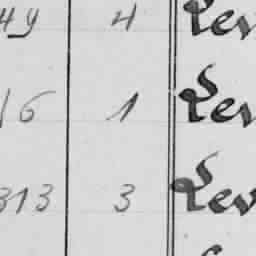 49 4 Lev
16 1 Lev
313 3 Lev